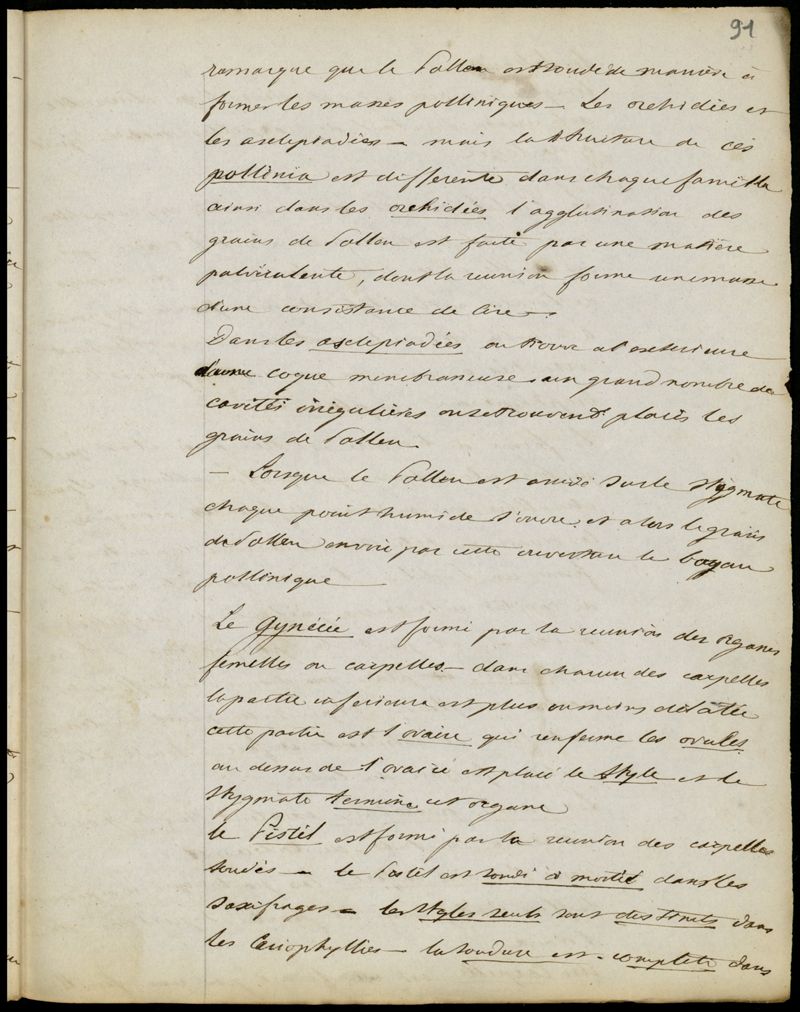 91
remarque que le Pollen est soudé de manière à
former les masses polliniques — Les orchidées et
les asclepiadées — mais la structure de ces
pollinia est differente dans chaque famille
ainsi dans les orchidées l'agglutination des
grains de Pollen est faite par une matière
pulvérulente, dont la reunion forme une masse
d'une consistance de Cire —.
Dans les asclepiadées on trouve a l'exterieure
d'une coque membraneuse un grand nombre de
cavités irrégulières ou se trouvent placés les
grains de Pollen
— Lorsque le Pollen est arrivé sur le stygmate
chaque point humide s'ouvre et alors le grain
de Pollen envoie par cette ouverture le boyau
pollinique —
Le Gynécée est formé par la reunion des organes
femelles ou carpelles — dans chacun des carpelles
la partie inferieure est plus ou moins dilatée
cette partie est l'ovaire qui renferme les ovules
au dessus de l'ovaire est placé le Style et le
stygmate termine cet organe
le Pistil est formé par la reunion des carpelles
soudés — le Pistil est soudé à moitié dans les
Saxifrages — les styles seuls sont distincts dans
les Cariophyllées — la soudure est complete dans